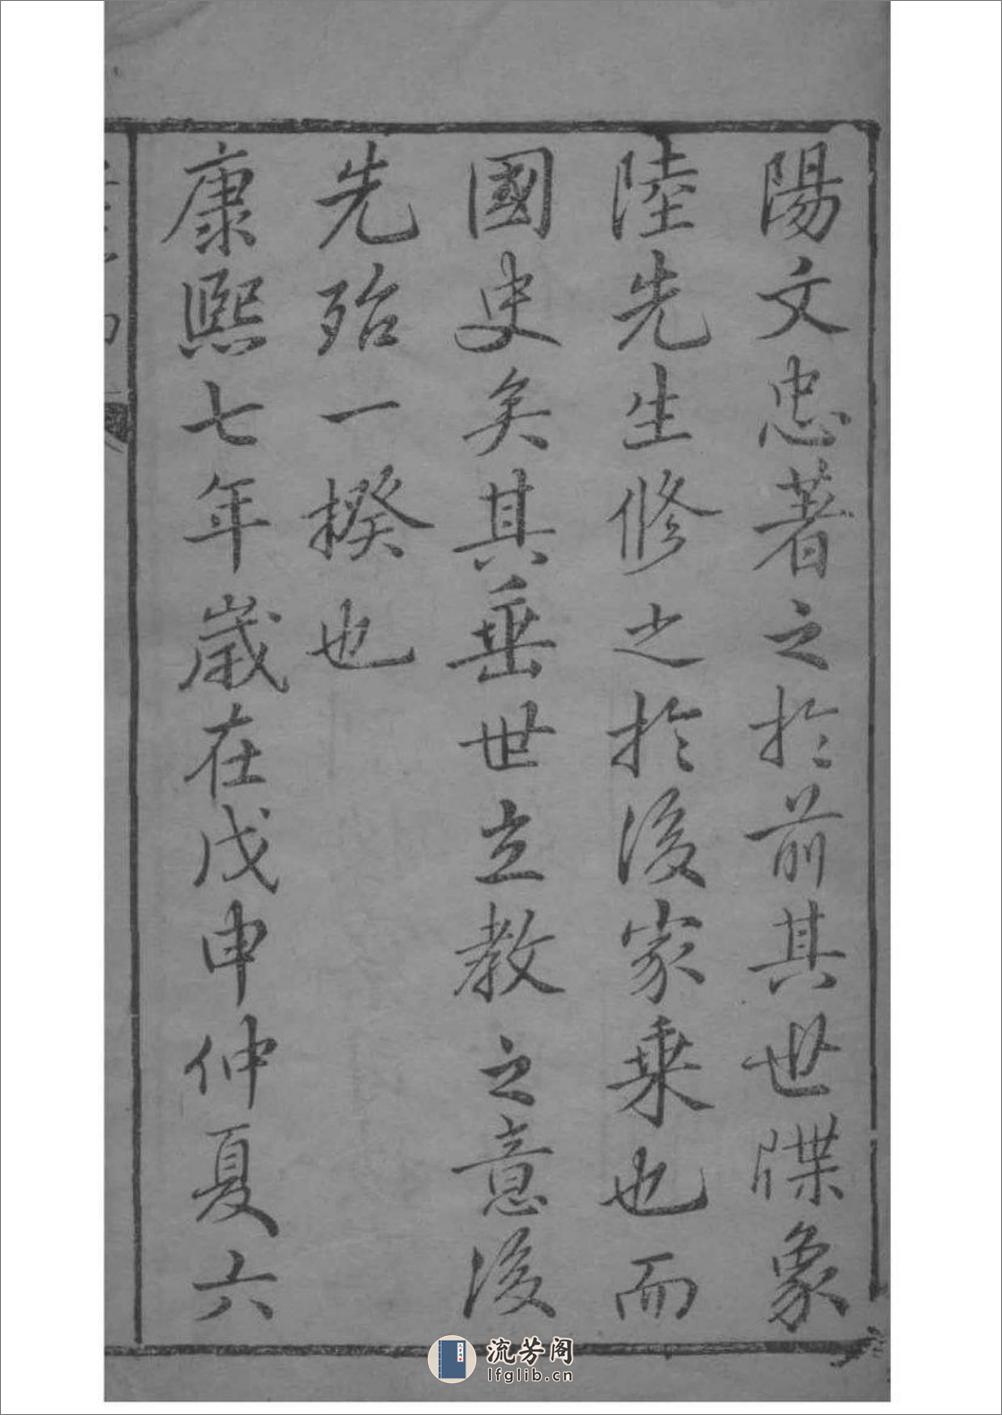 陽文忠著之於前其世牒象
陸先生修之於後家乗也而
國史矣其垂世立教之意後
先殆一揆也
康熙七年歲在戊申仲夏六
流芳阁
lfglib.cn